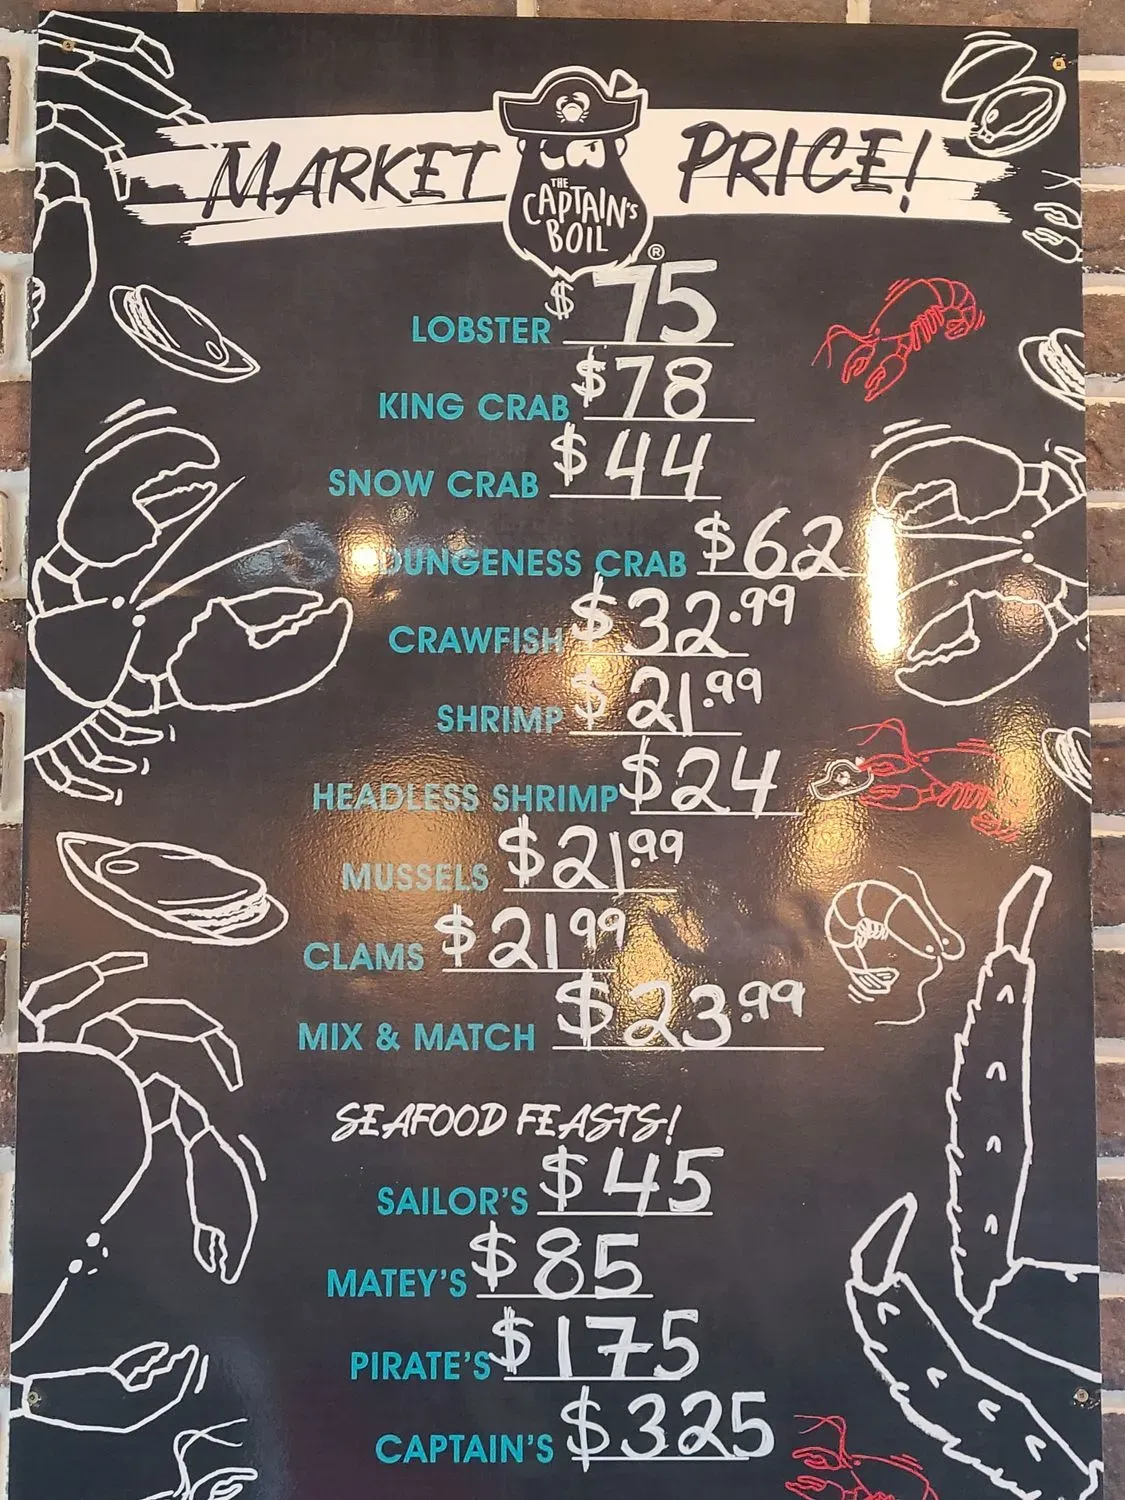 MARKET PRICE!
THE
CAPTAIN'S
BOIL
®
LOBSTER $75
KING CRAB $78
SNOW CRAB $44
DUNGENESS CRAB $62
CRAWFISH $32.99
SHRIMP $21.99
HEADLESS SHRIMP $24
MUSSELS $21.99
CLAMS $21 99
MIX & MATCH $23.99
SEAFOOD FEASTS!
SAILOR'S $45
MATEY'S $85
PIRATE'S $175
CAPTAIN'S $325